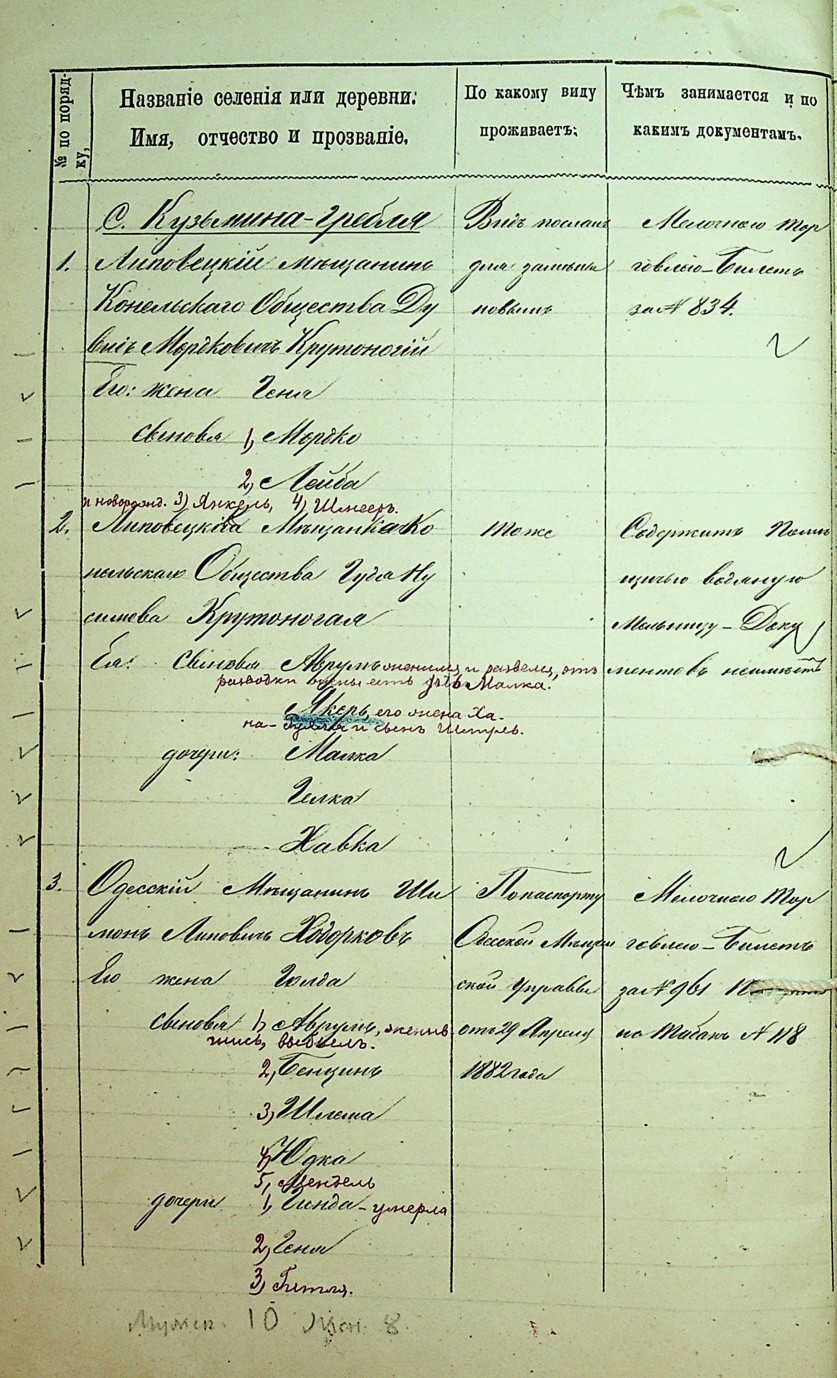 № по поряд-
ку,
Названіе селенія или деревни.
Имя, отчество и прозваніе.
По какому виду
проживаетъ.
Чѣмъ занимается и по
какимъ документамъ.
С. Кузьмина-Гребля
1. Липовецкій мѣщанинъ
Конельскаго Общества Ду
видъ Мордковичъ Крутоногій
Его: жена Геня
сыновья 1, Мордко
2, Лейба
и новорожд. 3) Янкель, 4) Шмееръ.
Видъ посланъ
для замены
новымъ
Мелочною тор
говлею - Билетъ
за № 834.
2. Липовецкая Мѣщанка Ко
нельскаго Общества Гудя Ну
симова Крутоногая
Ея: Сыновья Аврумъ женился и развелся, отъ
разводки жены есть дочь Малка.
Якеръ, его жена Ха-
на- и сынъ
дочери: Малка
Гелка
Хавка
Тоже
Содержитъ Поми
щичью водяную
Мельницу - Доку
ментовъ неимѣетъ
3. Одесскій Мѣщанинъ Ши
монъ Липовичъ Ходорковъ
Его жена Голда
сыновья 1, Аврумъ, женив
шись, выбылъ.
2, Бенционъ
3, Шлема
4, Юдка
5, Мендель
дочери 1, Гинда - умерла
2, Геня
3, Гитля.
По паспорту
Одесской Мѣщан
ской Управы
отъ 29 Апреля
1882 года
Мелочною Тор
говлею - Билетъ
за № 961
на Табакъ № 118
Мужск. 10 Жен. 8